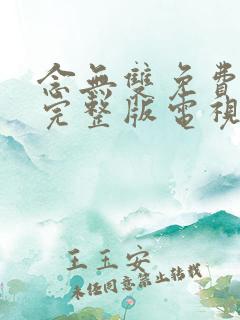 念無雙免費
完整版電視
王玉安
未經同意禁止轉載